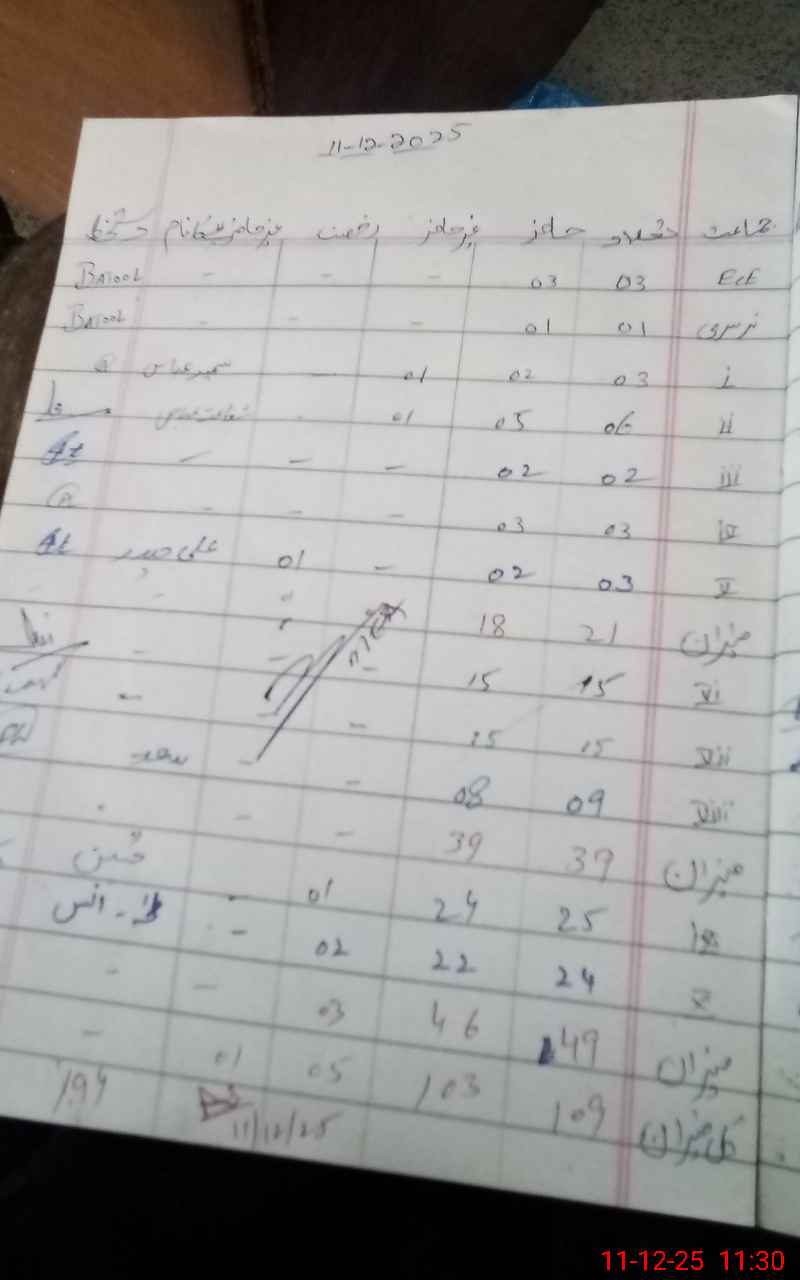 11-12-2025
جماعت تعداد حاضر غیر حاضر رخصت غیر حاضر بچے کا نام دستخط
ECE 03 03 - - - BATOOL
نرسری 01 01 - - - BATOOL
i 03 02 01 - سمیر عباس
ii 06 05 01 -
iii 02 02 - - -
iv 03 03 - - -
v 03 02 - 01 علی حیدر
میزان 21 18
vi 15 15 - - -
vii 15 15 - - -
viii 09 08 - - سعد
میزان 39 39 - - -
25 24 01 -
x 24 22 02 - انس
میزان 49 46 03 - -
کل میزان 109 103 05 01 -
194
11/12/25
11-12-25 11:30